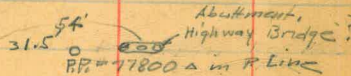 54' Abuttment,
31.5 Highway Bridge
P.P. = 17800 ∆ in P. Line